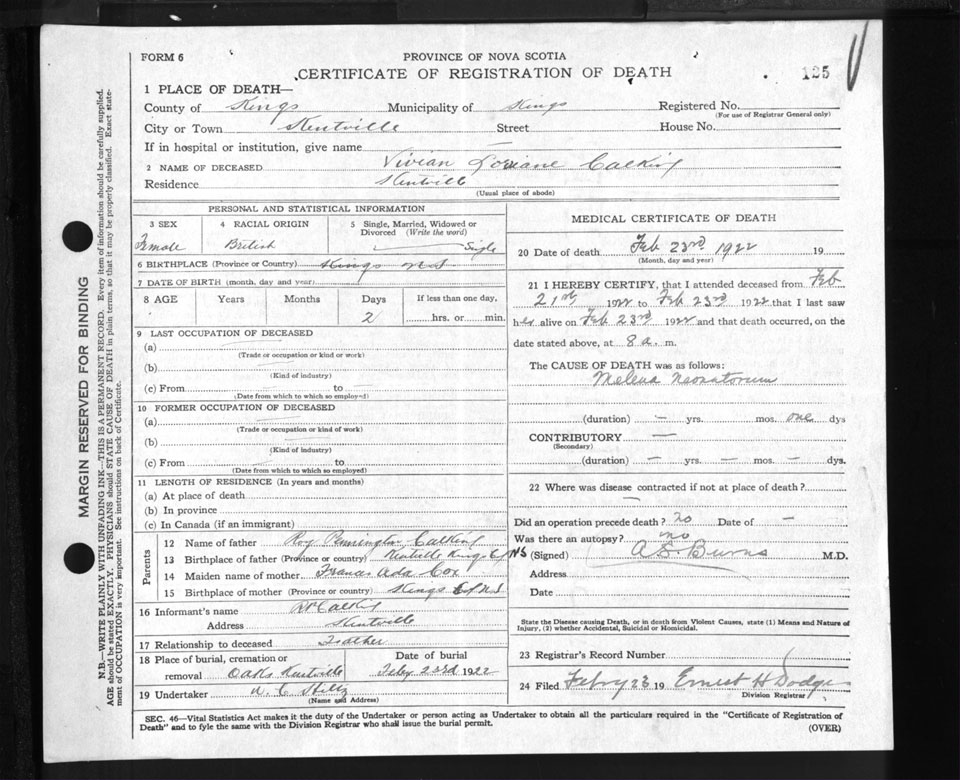 FORM 6
PROVINCE OF NOVA SCOTIA
CERTIFICATE OF REGISTRATION OF DEATH
125
1 PLACE OF DEATH—
County of Kings Municipality of Kings Registered No.
(For use of Registrar General only)
City or Town Kentville Street House No.
If in hospital or institution, give name —
2 NAME OF DECEASED Vivian Loriane Calkin
Residence Kentville
(Usual place of abode)
PERSONAL AND STATISTICAL INFORMATION
3 SEX 4 RACIAL ORIGIN 5 Single, Married, Widowed or Divorced (Write the word)
Female British Single
6 BIRTHPLACE (Province or Country) Kings N.S
7 DATE OF BIRTH (month, day and year)
8 AGE Years Months Days If less than one day,
2 hrs. or min.
9 LAST OCCUPATION OF DECEASED
(a)
(Trade or occupation or kind or work)
(b)
(Kind of industry)
(c) From to
(Date from which to which so employed)
10 FORMER OCCUPATION OF DECEASED
(a)
(Trade or occupation or kind of work)
(b)
(Kind of industry)
(c) From to
(Date from which to which so employed)
11 LENGTH OF RESIDENCE (In years and months)
(a) At place of death
(b) In province
(c) In Canada (if an immigrant)
Parents
12 Name of father Roy Pennington Calkin
13 Birthplace of father (Province or country) Kentville Kings Co NS
14 Maiden name of mother Frances Ada Cox
15 Birthplace of mother (Province or country) Kings Co N.S
16 Informant's name Calkin
Address Kentville
17 Relationship to deceased Father
18 Place of burial, cremation or removal Oaks Kentville Date of burial Feby 23rd 1922
19 Undertaker Hiltz
(Name and Address)
MEDICAL CERTIFICATE OF DEATH
20 Date of death Feb 23rd 1922 19
(Month, day and year)
21 I HEREBY CERTIFY, that I attended deceased from Feb
21st 1922 to Feb 23rd 1922 that I last saw
her alive on Feb 23rd 1922 and that death occurred, on the
date stated above, at 8 a. m.
The CAUSE OF DEATH was as follows:
Melena Neonatorum
(duration) — yrs. mos. one dys
CONTRIBUTORY —
(Secondary)
(duration) — yrs. — mos. — dys.
22 Where was disease contracted if not at place of death?
—
Did an operation precede death? no Date of —
Was there an autopsy? no
(Signed) A S Burns M.D.
Address
Date
State the Disease causing Death, or in death from Violent Causes, state (1) Means and Nature of
Injury, (2) whether Accidental, Suicidal or Homicidal.
23 Registrar's Record Number
24 Filed Febry 23 19 Ernest H Dodge
Division Registrar
SEC. 46—Vital Statistics Act makes it the duty of the Undertaker or person acting as Undertaker to obtain all the particulars required in the "Certificate of Registration of
Death" and to fyle the same with the Division Registrar who shall issue the burial permit.
(OVER)
MARGIN RESERVED FOR BINDING
N.B.—WRITE PLAINLY WITH UNFADING INK—THIS IS A PERMANENT RECORD. Every item of information should be carefully supplied.
AGE should be stated EXACTLY. PHYSICIANS should STATE CAUSE OF DEATH in plain terms, so that it may be properly classified. Exact state-
ment of OCCUPATION is very important. See instructions on back of Certificate.